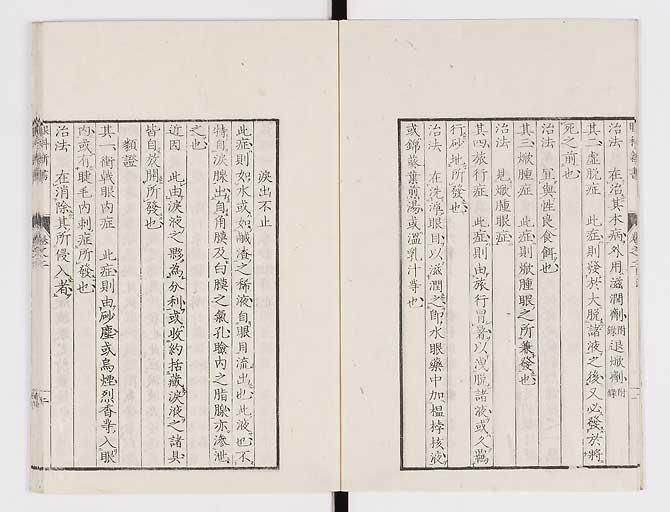 治法　在治其本病外用滋潤劑附錄退焮劑附錄
其二虛脫症　此症則發於大脫諸液之後又必發於將
死之前也
治法　宜與性良食餌也
其三焮腫症　此症則焮腫眼之所兼發也
治法　見焮腫眼症
其四旅行症　此症則由旅行冒暑以洩脫諸液或久羈
行砂地所發也
治法　在洗淨眼目以滋潤之即水眼藥中加榲桲核液
或錦葵葉煎湯或溫乳汁等也
淚出不止
此症則如水或如鹹渣之稀液自眼用流出也此液也不
特自淚腺出自角膜及白膜之氣孔瞼內之脂腺亦滲泄
之也
近因　此由淚液之夥為分利或收約括藏淚液之諸具
皆自放開所發也
類證
其一衝戟眼內症　此症則由砂塵或烏煙烈香等入眼
內或有睫毛內刺症所發也
治法　在消除其所侵入者
眼科新書
卷之二